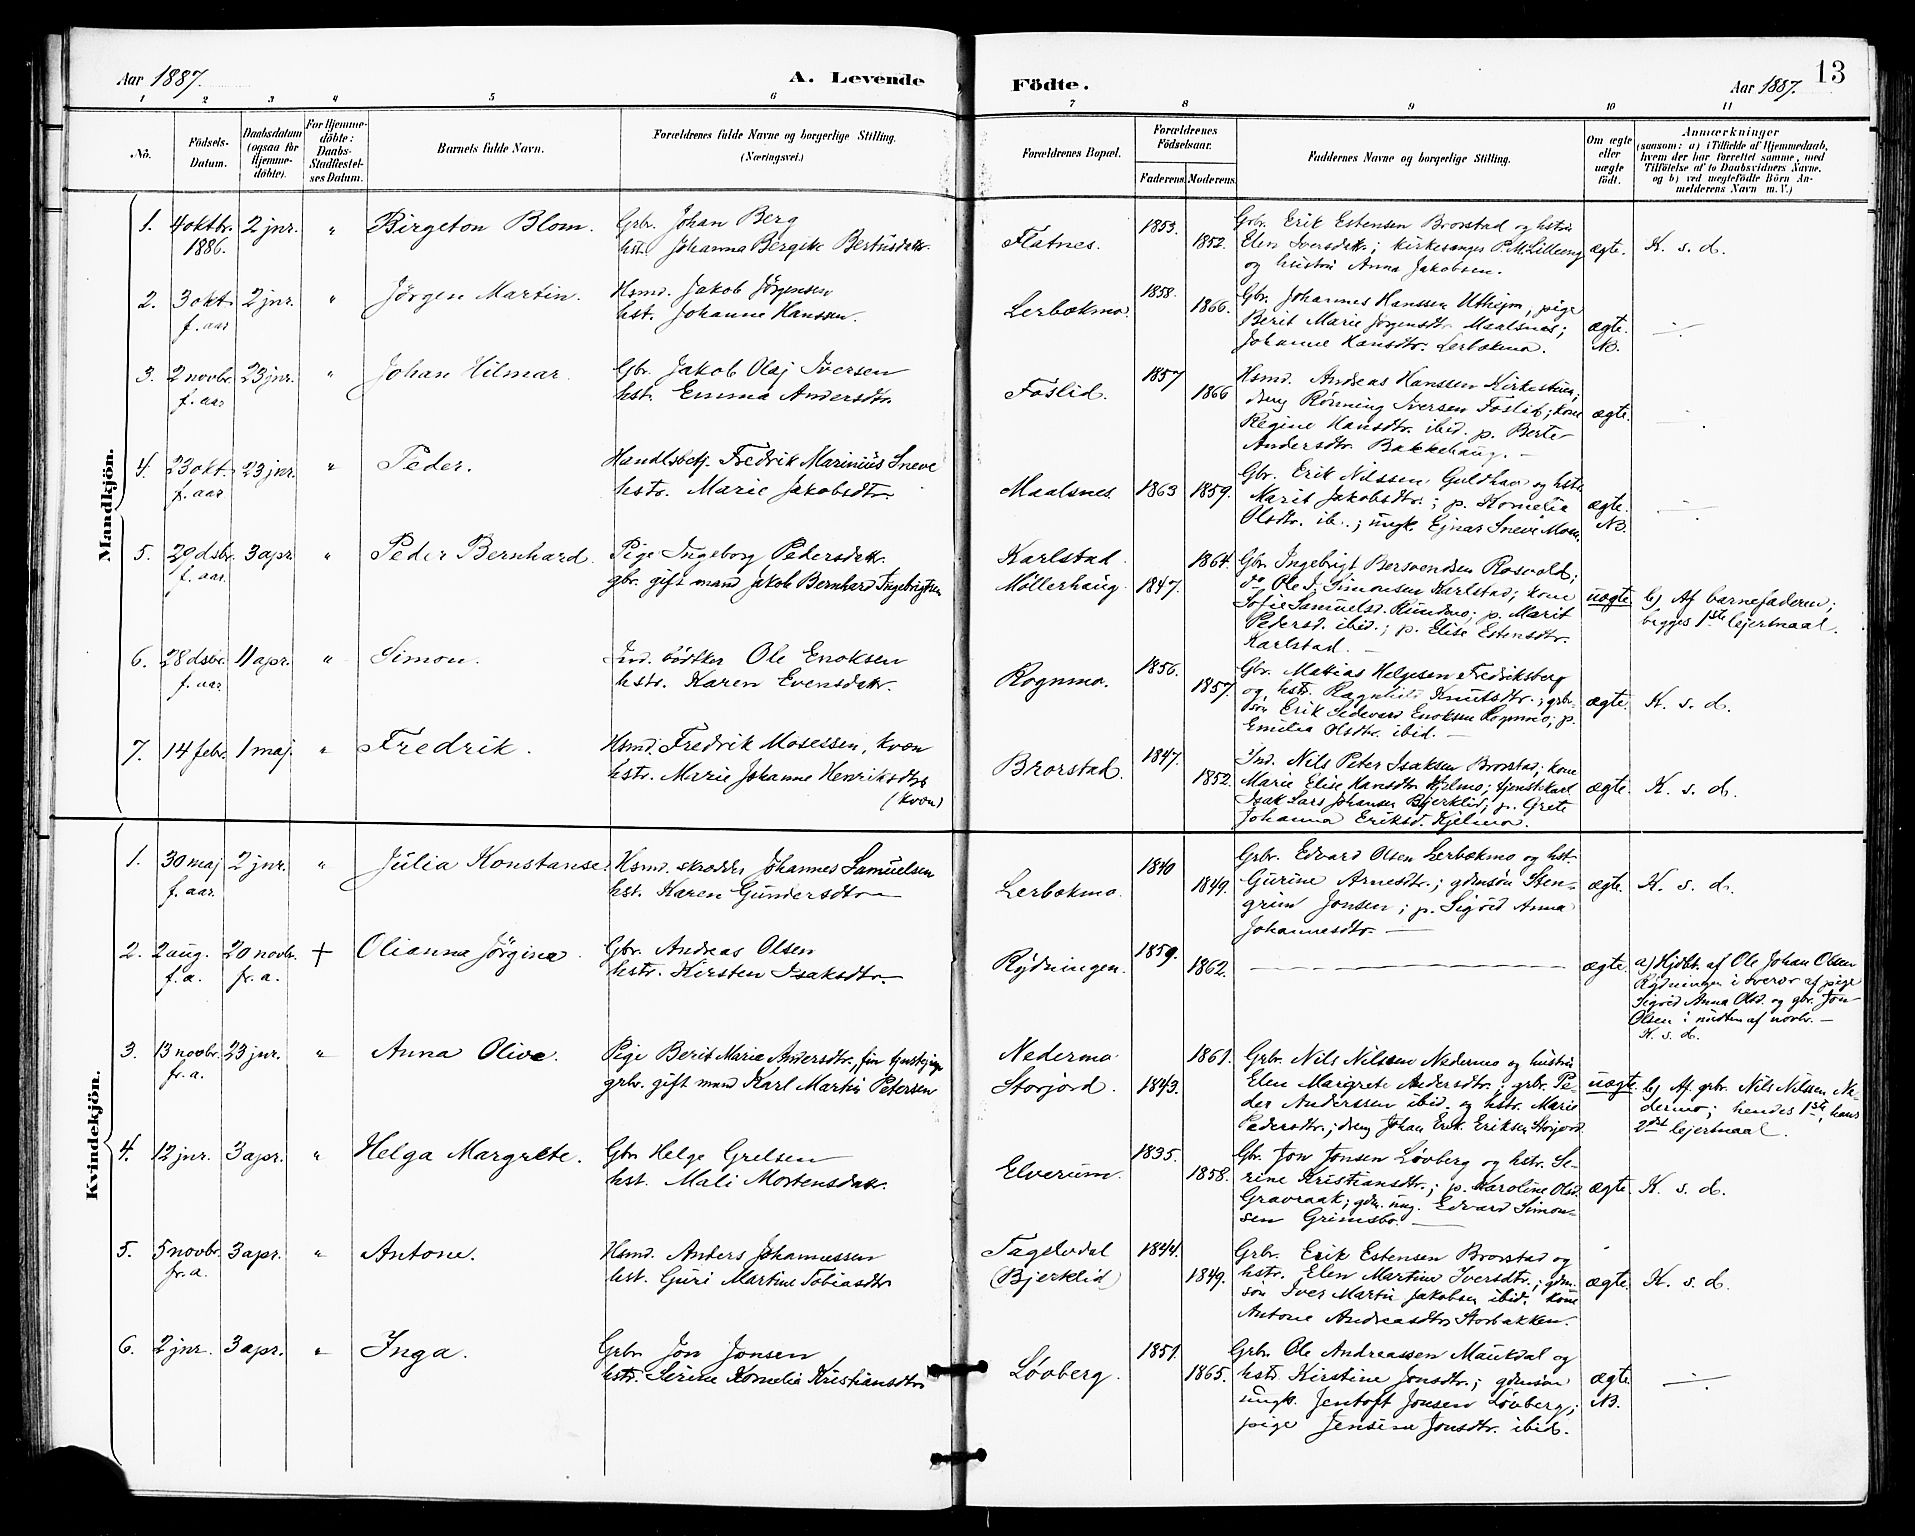 Aar 1887.
A. Levende
Födte.
Aar 1887.
13
1 2 3 4 5 6 7 8 9 10 11
No.
Födsels-
Datum.
Daabsdatum
(ogsaa for
Hjemme-
döbte).
For Hjemme-
döbte:
Daabs-
Stadfæstel-
ses Datum.
Barnets fulde Navn.
Forældrenes fulde Navne og borgerlige Stilling.
(Næringsvei.)
Forældrenes Bopæl.
Forældrenes
Födselsaar.
Faderens. Moderens.
Faddernes Navne og borgerlige Stilling.
Om ægte
eller
uægte
født.
Anmærkninger
(saasom: a) i Tilfælde af Hjemmedaab,
hvem der har forrettet samme, med
Tilföielse af to Daabsvidners Navne,
og b) ved uægtefödte Börn An-
melderens Navn m. V.)
Mandkjön.
1. 4 oktbr. 2 jnr. " Birgeton Blom. Grbr. Johan Berg
1886. hst. Johanna Bergite Bertusdatr.
Flatnes. 1853. 1852.
Grbr. Erik Estensen Brorstad og hstr.
Elen Iversdatr.; kirkesanger P. M. Lilleeng
og hustru Anna Jakobsen.
ægte. K. s. d.
2. 3 okt. 2 jnr. " Jörgen Martin. Hsmd. Jakob Jörgensen
f. aar hst. Johanne Hanssen.
Lerbækmo. 1858. 1866.
Gbr. Johannes Hanssen Utheim, pige
Berit Marie Jörgensdtr. Maalsnes;
Johanne Hansdtr. Lerbækmo.
ægte.
NB.
3. 2 novbr. 23 jnr. " Johan Hilmar. Gbr. Jakob Olaj Iversen
f. aar hst. Emma Andersdtr.
Foslid. 1857 1866
Hsmd. Andreas Hanssen Kirkestuen;
dreng Rönning Iversen Foslid; kone
Regine Hansdtr. ibid. p. Berte
Andersdtr. Bakkehaug.
ægte.
4. 23 okt. 23 jnr. " Peder. Handlsbetj. Fredrik Marinius Sneve
f. aar. hstr. Marie Jakobsdtr.
Maalsnes. 1863 1859.
Gbr. Erik Nilssen Guldhav og hstr.
Marit Jakobsdtr.; p. Kornelia
Olsdtr. ib.; ungk. Ejnar Sneve Moen.
ægte.
NB.
5. 20 dsbr. 3 apr. " Peder Bernhard. Pige Ingeborg Pedersdatr.
f. aar. gbr. gift mand Jakob Bernhard Ingebrigtsen
Karlstad. 1864.
Møllerhaug. 1847.
Gbr. Ingebrigt Bersvendsen Rosvold;
do Ole I. Simonsen Karlstad; kone
Sofie Samuelsd. Rundmo; p. Marit
Pedersd. ibid.; p. Elise Estensdtr.
Karlstad.
uægte. b) Af barnefaderen;
begges 1ste lejermaal.
6. 28 dsbr. 11 apr. " Simon. Ind. bödker Ole Enoksen
f. aar hstr. Karen Evensdatr.
Rognmo. 1856. 1857.
Gbr. Matias Helgesen Fredriksberg
og hstr. Ragnhild Knutsdtr.; grbr.
sön Erik Sedevard Enoksen Rognmo; p.
Emilie Olsdtr. ibid.
ægte. K. s. d.
7. 14 febr. 1 maj. " Fredrik. Hsmd. Fredrik Mosessen, Kvæn
hstr. Marie Johanne Henriksdtr.
(kvæn)
Brorstad. 1847. 1852.
Ind. Nils Peter Isaksen Brorstad; kone
Marie Elise Hansdtr. Kjelmo; tjenstekarl
Isak Lars Johansen Bjerklid; p. Grete
Johanna Eriksd. Kjelmo.
ægte. K. s. d.
Kvindekjön.
1. 30 maj 2 jnr. " Julia Konstanse. Hsmd. skrædder Johannes Samuelsen
f. aar. hst. Karen Gundersdtr.
Lerbækmo. 1840 1849.
Grbr. Edvard Olsen Lerbækmo og hst.
Gurine Arnesdtr.; gdmsön Sten-
grim Jonsen; p. Sigrid Anna
Johannesdtr.
ægte. K. s. d.
2. 2 aug. 20 novbr. + Olianna Jörgina. Gbr. Andreas Olsen
f. a. fr. a. hstr. Kirsten Isaksdtr.
Rydningen. 1859. 1862.
ægte. a) Hjdbt. af Ole Johan Olsen
Rydningen i overvær af pige
Sigrid Anna Olsd. og gbr. Jon
Olsen i midten af novbr. —
K. s. d.
3. 13 novbr. 23 jnr. " Anna Olive. Pige Berit Marie Andersdtr., fin tjenstepige
fr. a. grbr. gift mand Karl Martin Petersen
Nedermo. 1861.
Storjord. 1843.
Grbr. Nils Nilssen Nedermo og hustru
Elen Margrete Andersdtr.; grbr. Pe-
der Anderssen ibid. og hstr. Marie
Pedersdtr.; dreng Johan Erik Eriksen Storjord.
uægte. b) Af grbr. Nils Nilssen, Ne-
dermo; hendes 1ste, hans
2det lejermaal.
4. 12 jnr. 3 apr. " Helga Margrete. Gbr. Helge Grelsen
hst. Mali Mortensdatr.
Elverum. 1835. 1858.
Gbr. Jon Jonsen Løvberg og hstr. Se-
rine Kristiansdtr.; p. Karoline Olsd.
Gravraak; gdm. ung. Edvard Simon-
sen Grimsbo.
ægte. K. s. d.
5. 5 novbr. 3 apr. " Antone. Hsmd. Anders Johannessen
fr. a. hst. Guri Martine Tobiasdtr.
Fagerlidal 1844.
(Bjerklid) 1849.
Grbr. Erik Estensen Brorstad og
hstr. Elen Martine Iversdtr.; gdm.
sön Iver Martin Jakobsen ibid. kone
Antone Andreasdtr. Storbakken.
ægte. K. s. d.
6. 2 jnr. 3 apr. " Inga. Grbr. Jon Jonsen
hstr. Serine Kornelia Kristiansdtr.
Løvberg. 1851. 1865.
Grbr. Ole Andreassen Maukdal og
hstr. Kirstine Jonsdtr.; gdmsön
ungk. Jentoft Jonsen Løvberg;
pige Jensine Jonsdtr. ibid.
ægte.
NB.